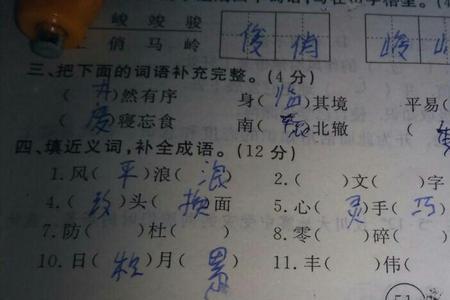 峻 竣 骏
俏 马 岭 俊 俏 峻
三、把下面的词语补充完整。(4分)
(井)然有序 身(临)其境 平易(
(废)寝忘食 南( )北辙 (
四、填近义词,补全成语。(12分)
1.风(平)浪( 浪 2.( )文( )字
4.(改)头(换)面 5.心(灵)手(巧)
7.防( )杜( ) 8.零( )碎( )
10.日( )月(累) 11.丰( )伟( )
51